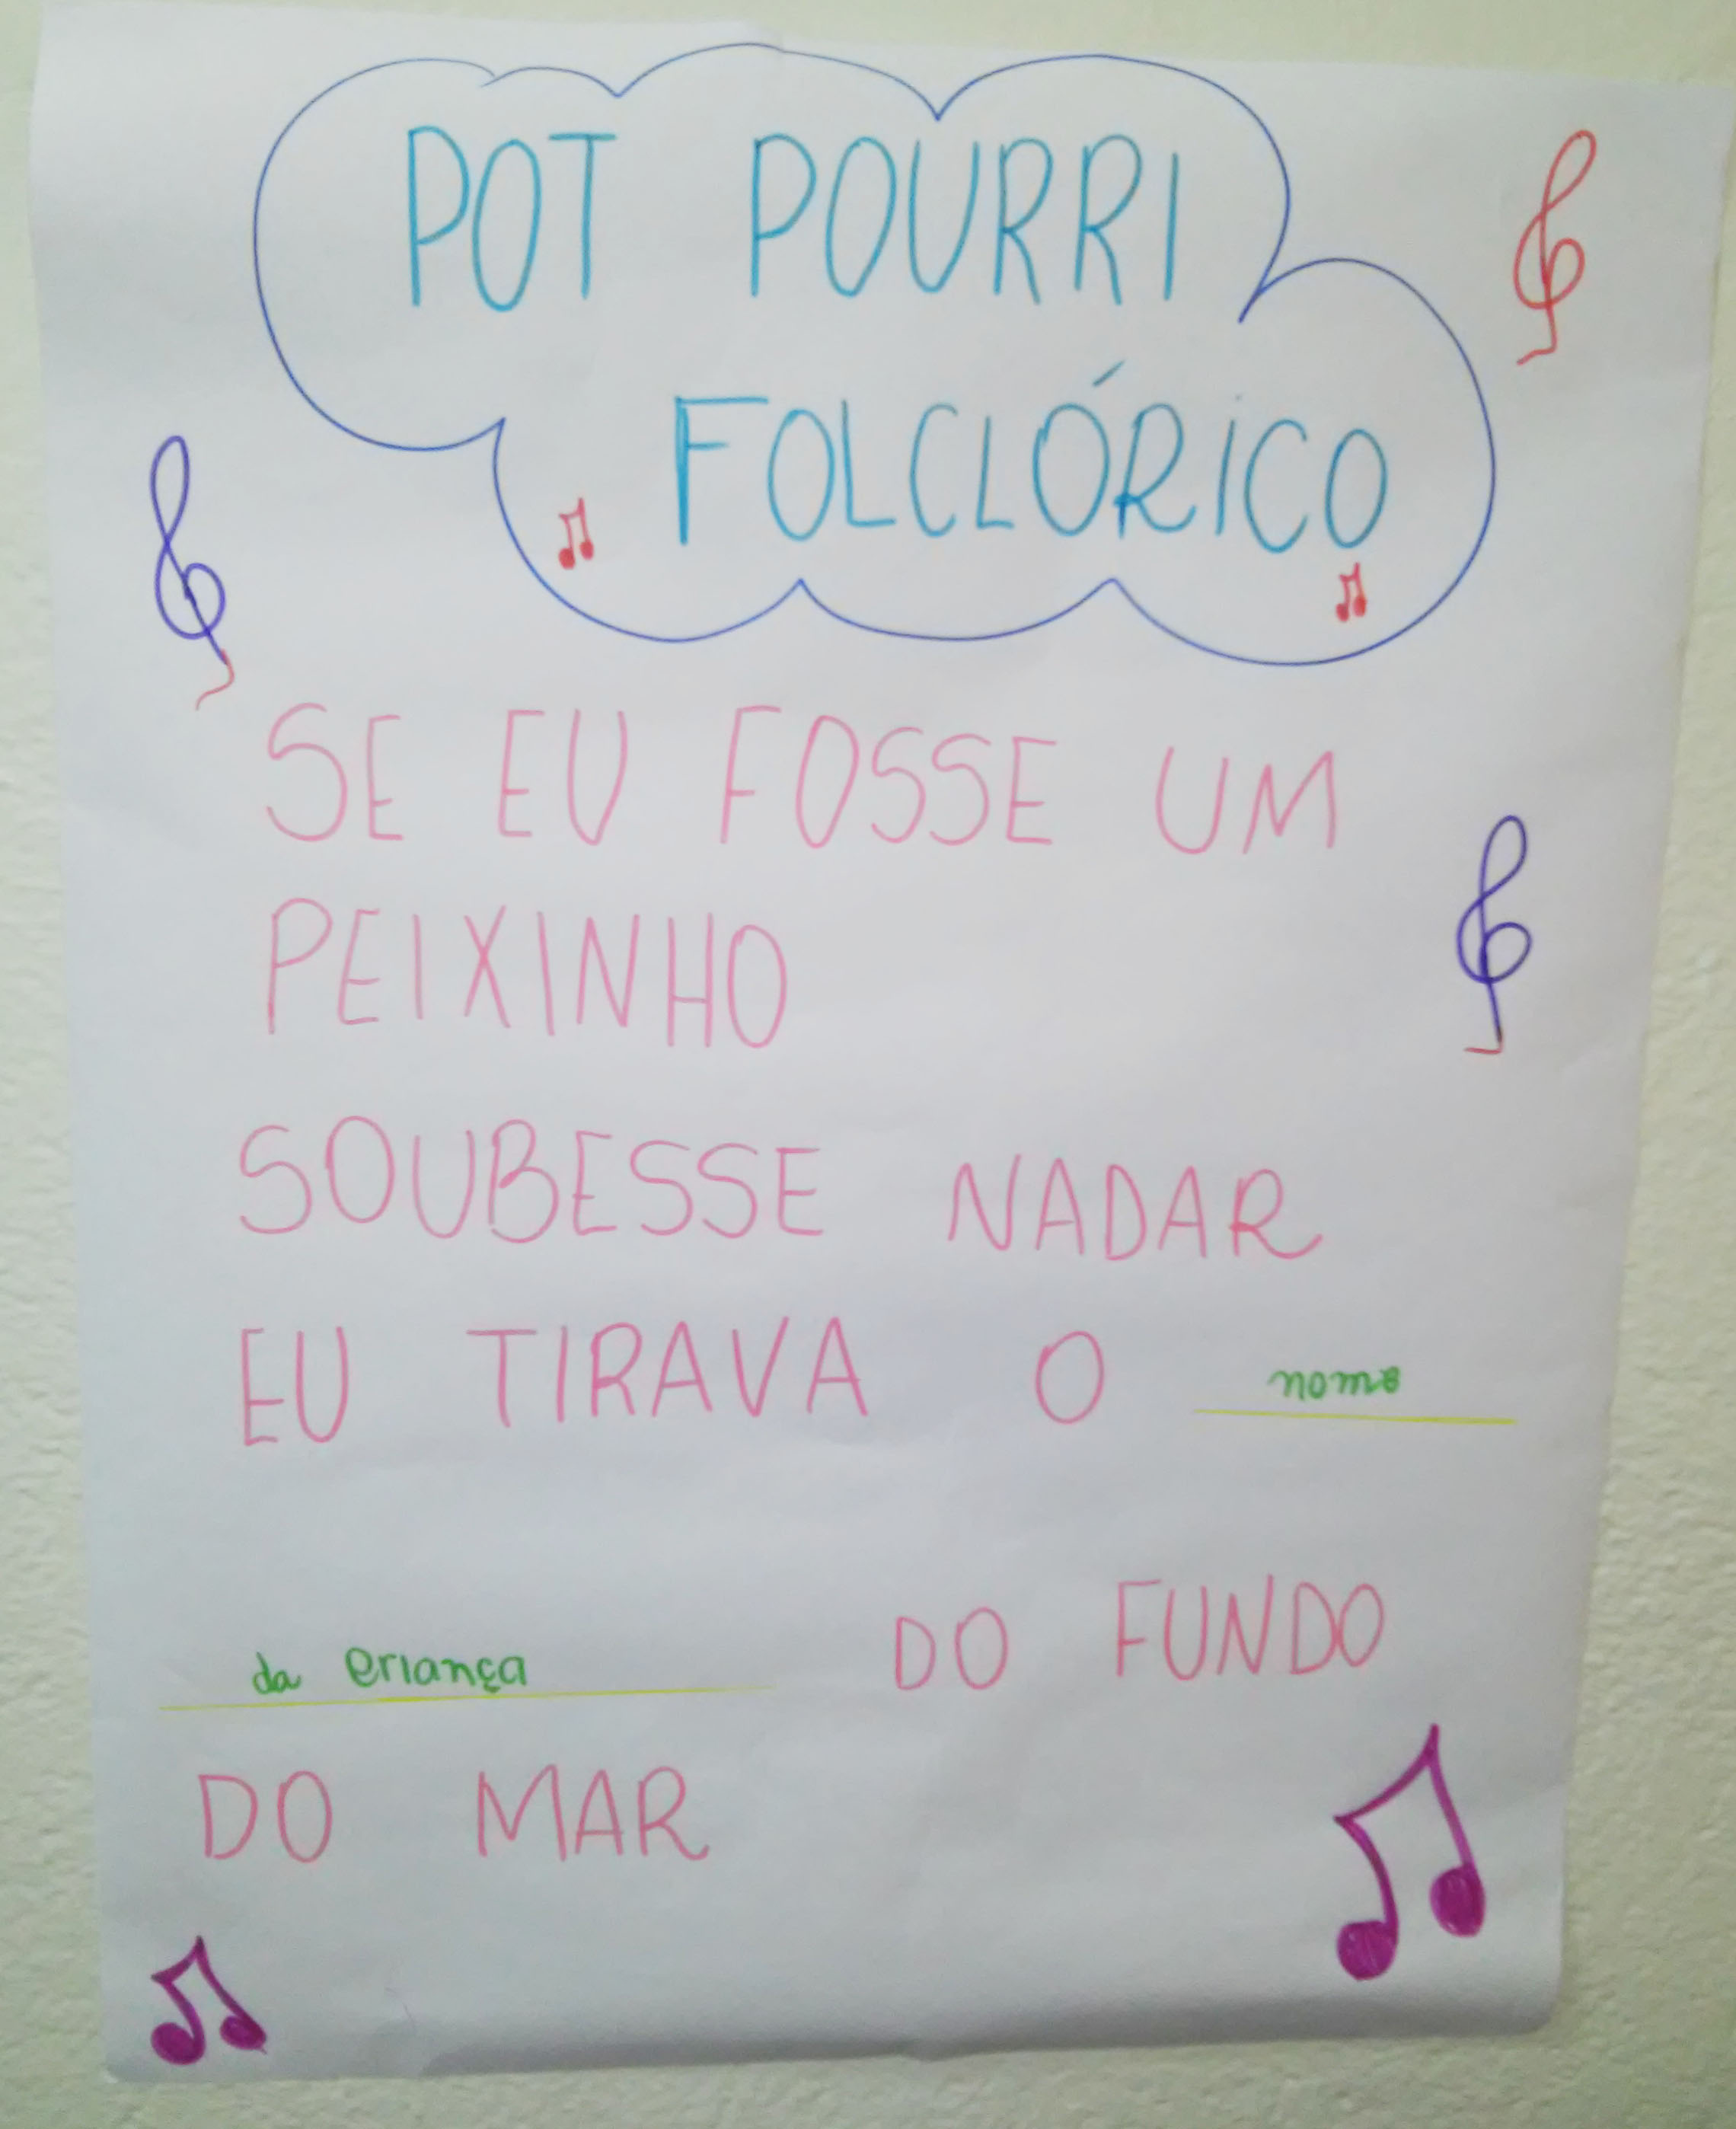 POT POURRI
FOLCLÓRICO
SE EU FOSSE UM
PEIXINHO
SOUBESSE NADAR
EU TIRAVA O nome
da criança DO FUNDO
DO MAR